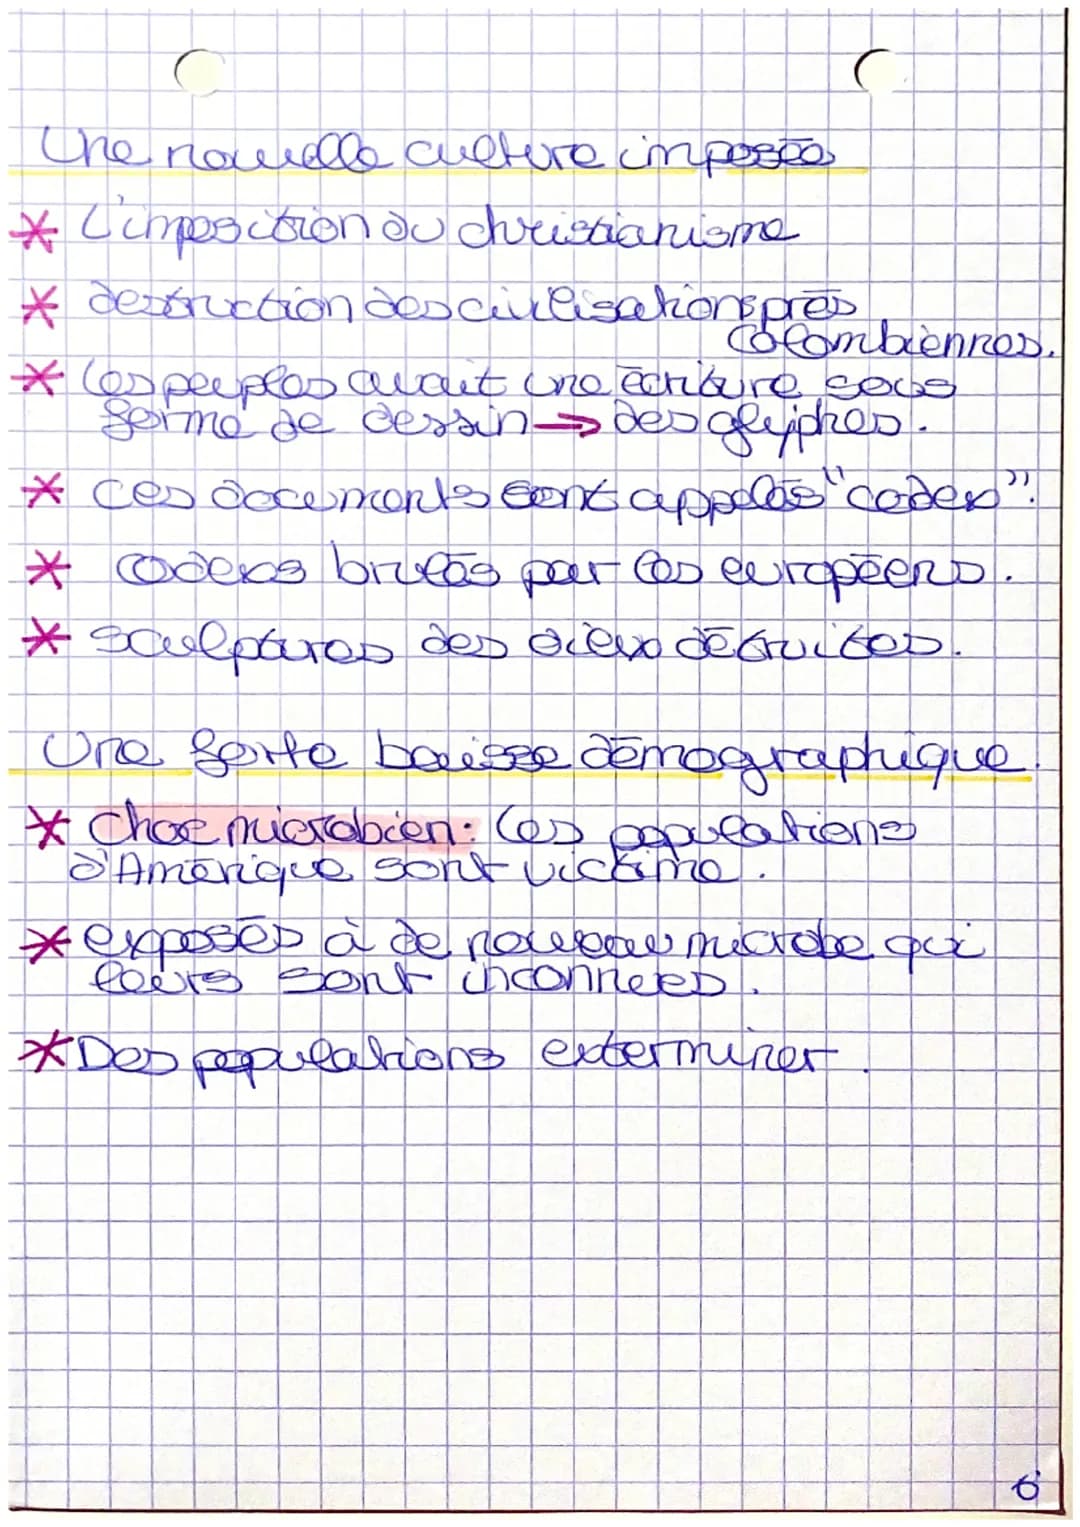 Une nouvelle culture imposée
* L'imposition du christianisme
* destruction des civilisations prés
colombiennes.
* les peuples avait une écriture sous
forme de dessin ⇒ des glyphes.
* Ces documents sont appelés "codex".
* codexs brulés par les européens.
* sculptures des dieux détruites.
Une forte baisse démographique.
* Choc microbien: les populations
d'Amérique sont victime.
* exposés à de nouveau microbe qui
leurs sont inconnees.
* Des populations exterminer.
6